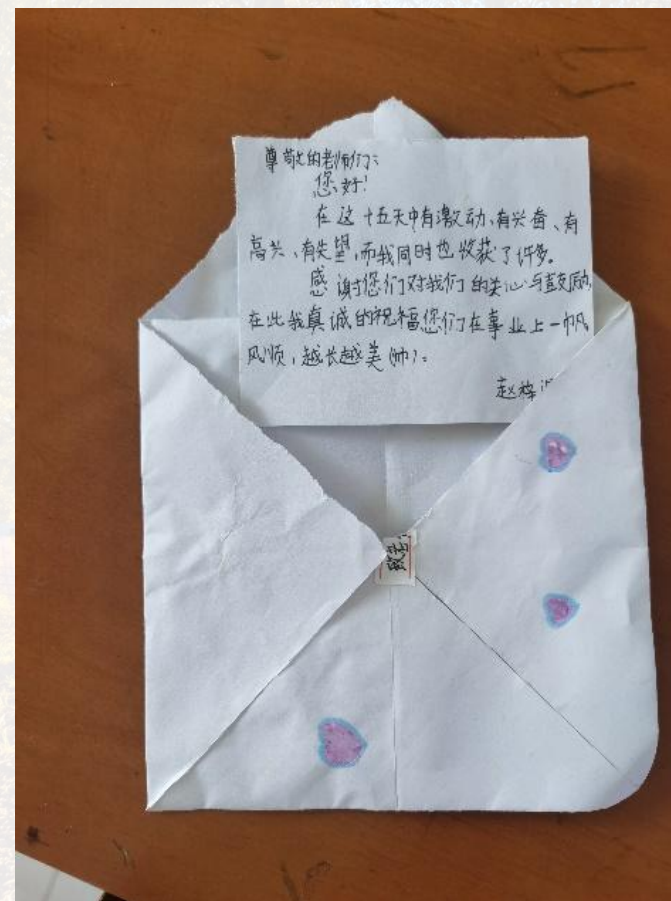 尊敬的老师们：
您好！
在这十五天中有激动、有兴奋、有
高兴、有失望，而我同时也收获了许多。
感谢您们对我们的关心与鼓励，
在此我真诚的祝福您们在事业上一帆
风顺，越长越美(帅)。
赵梓